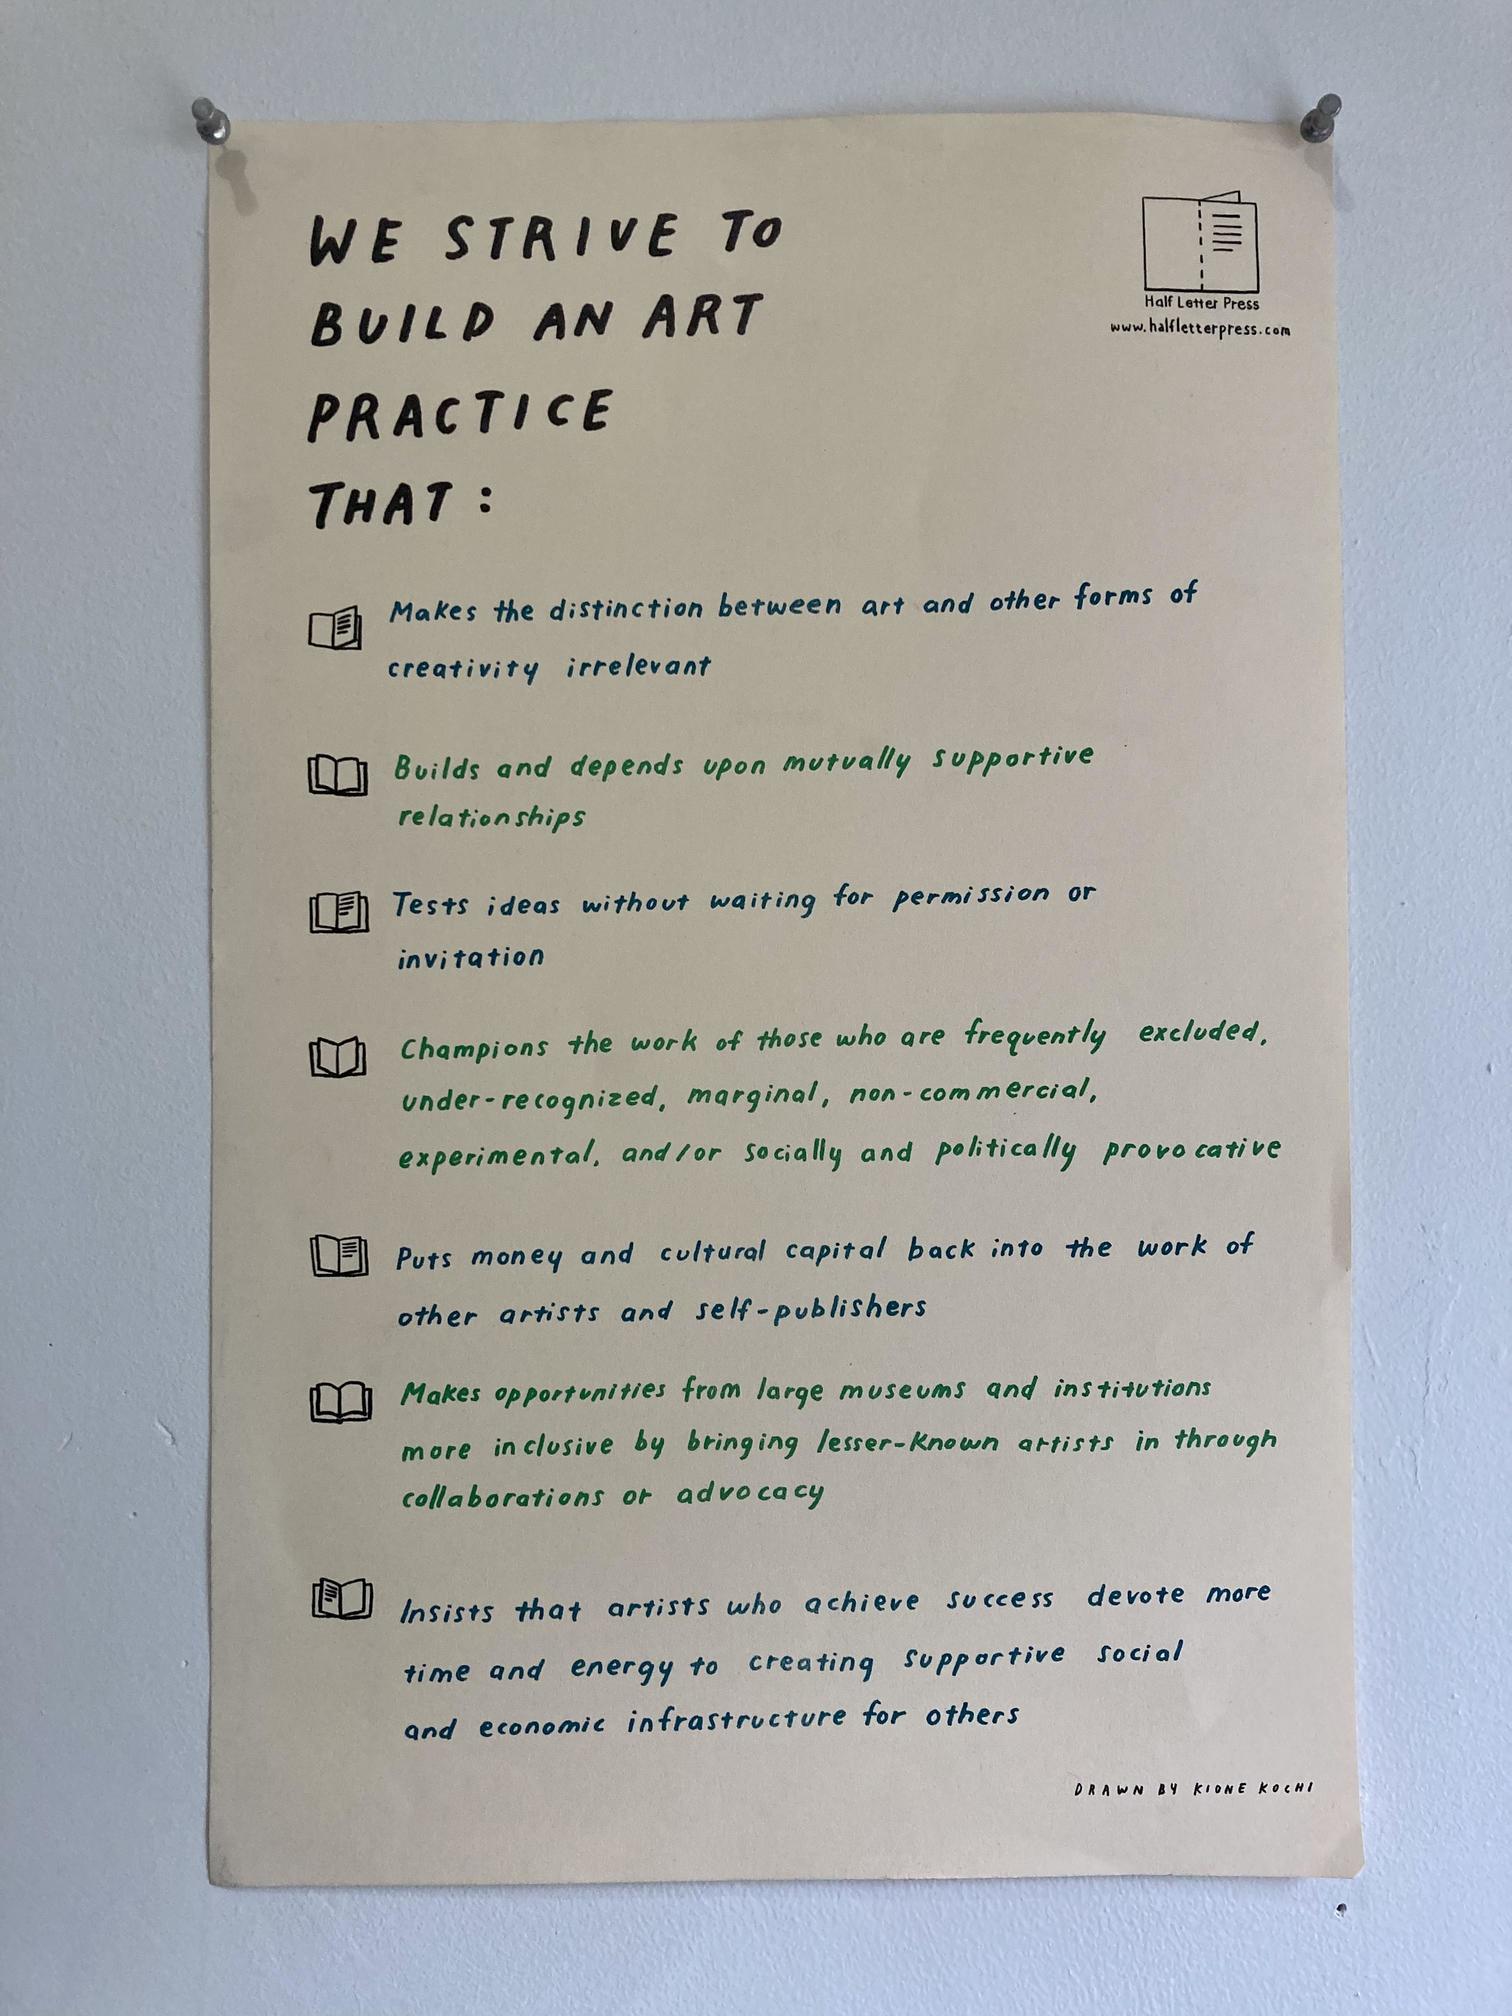 WE STRIVE TO
BUILD AN ART
PRACTICE
THAT :
Half Letter Press
www.halfletterpress.com
Makes the distinction between art and other forms of
creativity irrelevant
Builds and depends upon mutually supportive
relationships
Tests ideas without waiting for permission or
invitation
Champions the work of those who are frequently excluded,
under-recognized, marginal, non-commercial,
experimental, and/or socially and politically provocative
Puts money and cultural capital back into the work of
other artists and self-publishers
Makes opportunities from large museums and institutions
more inclusive by bringing lesser-known artists in through
collaborations or advocacy
Insists that artists who achieve success devote more
time and energy to creating supportive social
and economic infrastructure for others
DRAWN BY KIONE KOCHI